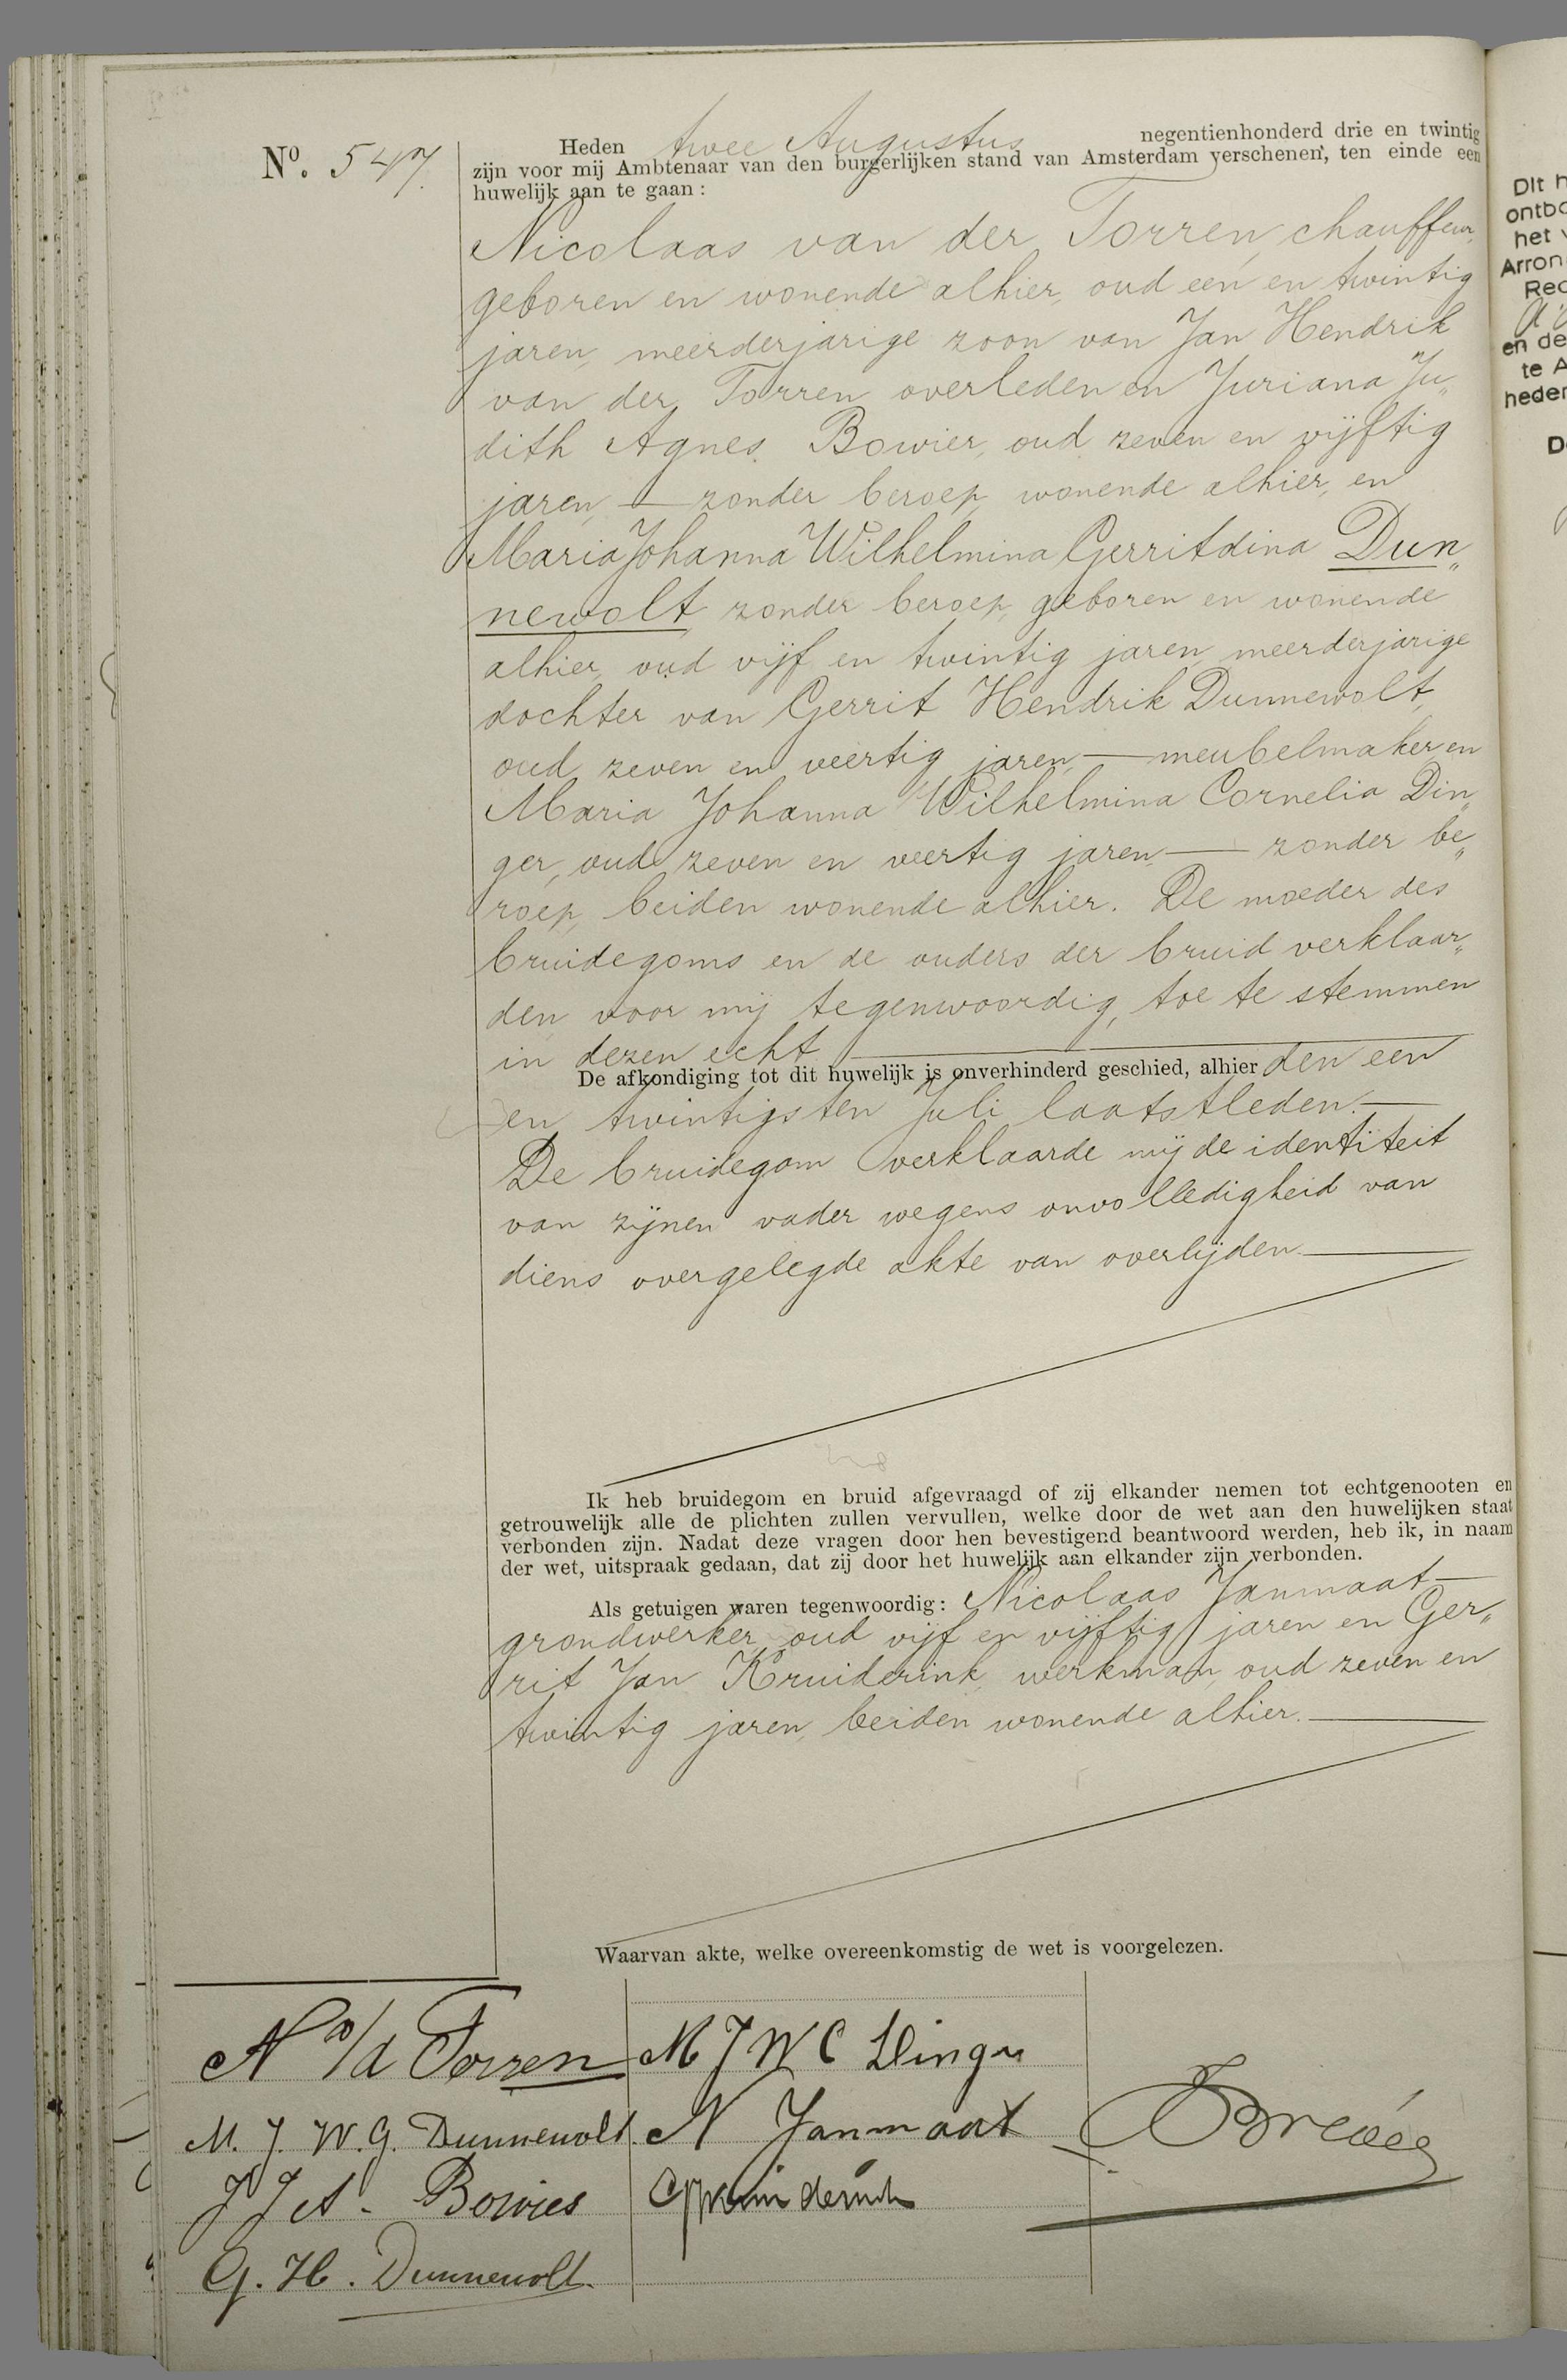 No. 547.
Heden twee Augustus negentienhonderd drie en twintig
zijn voor mij Ambtenaar van den burgerlijken stand van Amsterdam verschenen, ten einde een
huwelijk aan te gaan:
Nicolaas van der Torren, chauffeur,
geboren en wonende alhier, oud een en twintig
jaren, meerderjarige zoon van Jan Hendrik
van der Torren overleden en Juriana Ju„
dith Agnes Bowier, oud zeven en vijftig
jaren, — zonder beroep, wonende alhier, en
Maria Johanna Wilhelmina Gerritdina Dun„
newolt, zonder beroep, geboren en wonende
alhier, oud vijf en twintig jaren, meerderjarige
dochter van Gerrit Hendrik Dunnewolt,
oud zeven en veertig jaren, — meubelmaker en
Maria Johanna Wilhelmina Cornelia Din„
ger, oud zeven en veertig jaren, — zonder be„
roep, beiden wonende alhier. De moeder des
bruidegoms en de ouders der bruid verklaar„
den voor mij tegenwoordig, toe te stemmen
in dezen echt.
De afkondiging tot dit huwelijk is onverhinderd geschied, alhier den een
en twintigsten Juli laatstleden. —
De bruidegom verklaarde mij de identiteit
van zijnen vader wegens onvolledigheid van
diens overgelegde akte van overlijden. —
Ik heb bruidegom en bruid afgevraagd of zij elkander nemen tot echtgenooten en
getrouwelijk alle de plichten zullen vervullen, welke door de wet aan den huwelijken staat
verbonden zijn. Nadat deze vragen door hen bevestigend beantwoord werden, heb ik, in naam
der wet, uitspraak gedaan, dat zij door het huwelijk aan elkander zijn verbonden.
Als getuigen waren tegenwoordig: Nicolaas Janmaat —
grondwerker, oud vijf en vijftig jaren en Ger„
rit Jan Kruiderink, werkman, oud zeven en
twintig jaren, beiden wonende alhier. —
Waarvan akte, welke overeenkomstig de wet is voorgelezen.
N v/d Torren
M. J. W. G. Dunnewolt.
J J A. Bowier
G. H. Dunnewolt.
M J W C Dinger
N Janmaat
Dit
het
Arron
en de
te A
heden